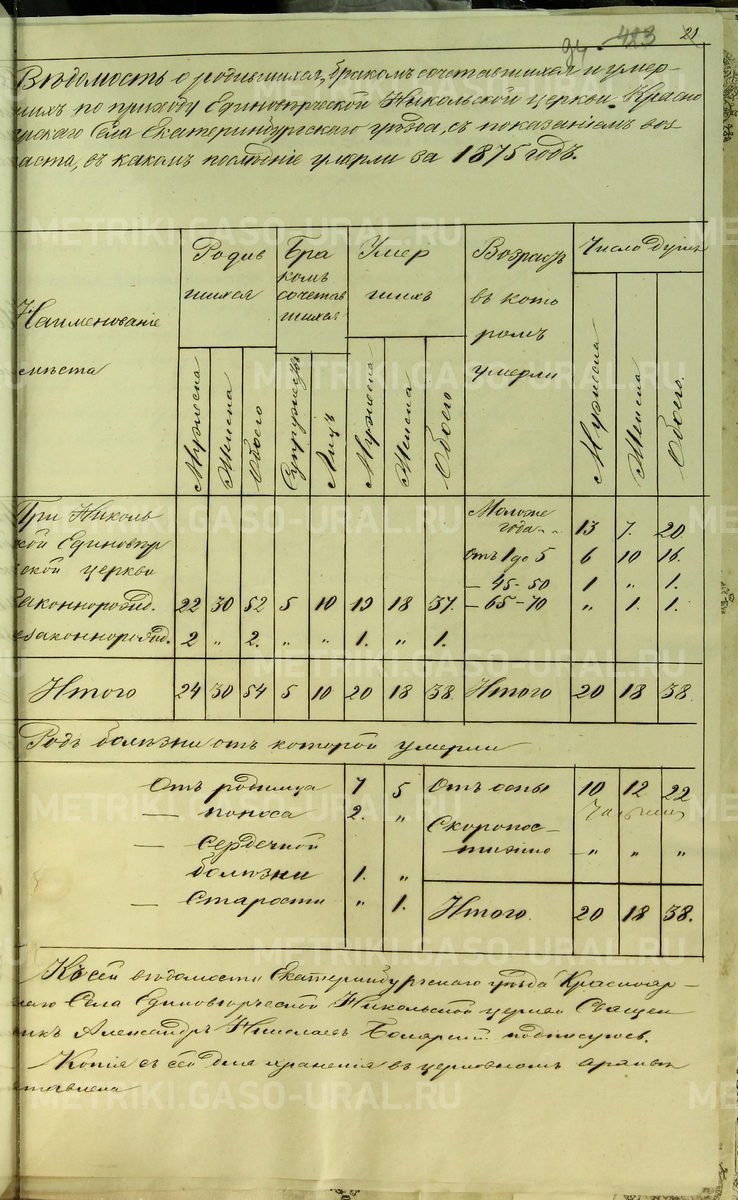 94 - 423 21
Вѣдомость о родившихся, бракомъ сочетавшихся и умер-
шихъ по приходу Единовѣрческой Никольской церкви Красно
ярскаго Села Екатеринбургскаго уѣзда, съ показаніемъ воз-
раста, въ какомъ послѣдніе умерли за 1875 годъ.
Наименованіе мѣста
Родив шихся
Бра комъ сочетав шихся
Умер шихъ
Возрастъ въ кото ромъ умерли
Число душъ
Мужеска Женска Обоего Супружествъ Лицъ Мужеска Женска Обоего Мужеска Женска Обоего
При Николь Моложе
ской Единовѣр года " 13 7. 20.
ческой церкви Отъ 1 до 5 6 10 16.
— 45-50 1 " 1.
Законнорожд. 22 30 52 5 10 19 18 37. — 65-70 " 1. 1.
Незаконнорожд. 2 " 2. " " 1. " 1.
Итого 24 30 54 5 10 20 18 38. Итого 20 18 38.
Родъ болѣзни отъ которой умерли
Отъ родимца 7 5 Отъ оспы 10 12 22
— поноса 2. " Скоропос-
— сердечной тижно " " "
болѣзни 1. "
— Старости " 1. Итого 20 18 38.
Къ сей вѣдомости Екатеринбургскаго уѣзда Краснояр-
скаго Села Единовѣрческой Никольской церкви Священ
никъ Александръ Николаевъ подписуюсь.
Копія съ сей для храненія въ церковномъ архивѣ
оставлена
METRIKI.GASO-URAL.RU